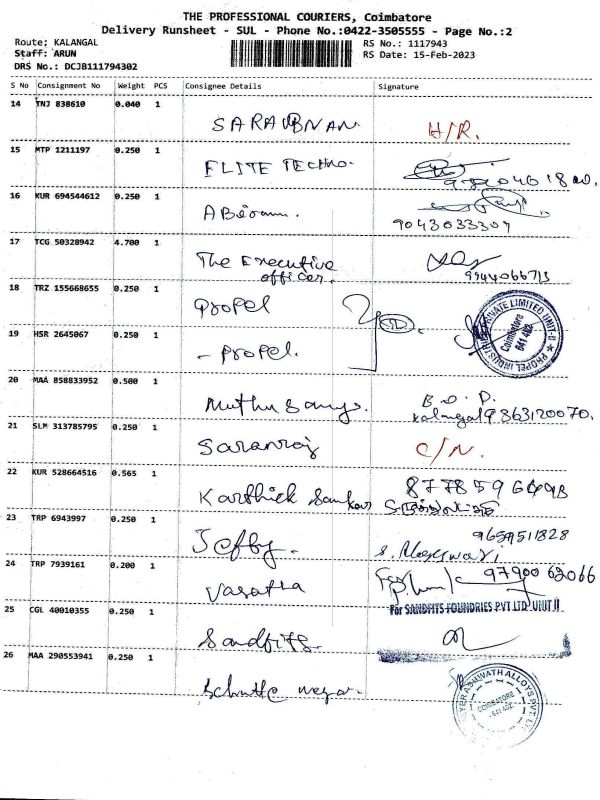 THE PROFESSIONAL COURIERS, Coimbatore
Delivery Runsheet - SUL - Phone No.:0422-3505555 - Page No.:2
Route: KALANGAL
Staff: ARUN
DRS No.: DCJB111794302
RS No.: 1117943
RS Date: 15-Feb-2023
S No Consignment No Weight PCS Consignee Details Signature
14 TNJ 838610 0.040 1
SARAVANAN. H/R.
15 MTP 1211197 0.250 1
ELITE TECHNO.
16 KUR 694544612 0.250 1
9043033307
17 TCG 50328942 4.700 1
The Executive
officer.
18 TRZ 155668655 0.250 1
Propel
19 HSR 2645067 0.250 1
- Propel.
PROPEL INDUSTRIES PRIVATE LIMITED UNIT-II
Coimbatore
641 402
20 MAA 858833952 0.500 1
Muthusamy.
Kalangal 9863120070.
21 SLM 313785795 0.250 1
Saranraj C/N.
22 KUR 528664516 0.565 1
Karthick Sankar
23 TRP 6943997 0.250 1
9659511828
Jeffy.
24 TRP 7939161 0.200 1
9790062066
Vasatha
For SANDFITS FOUNDRIES PVT LTD., UNIT II
25 CGL 40010355 0.250 1
Sandfits.
26 MAA 290553941 0.250 1
COIMBATORE
641 402